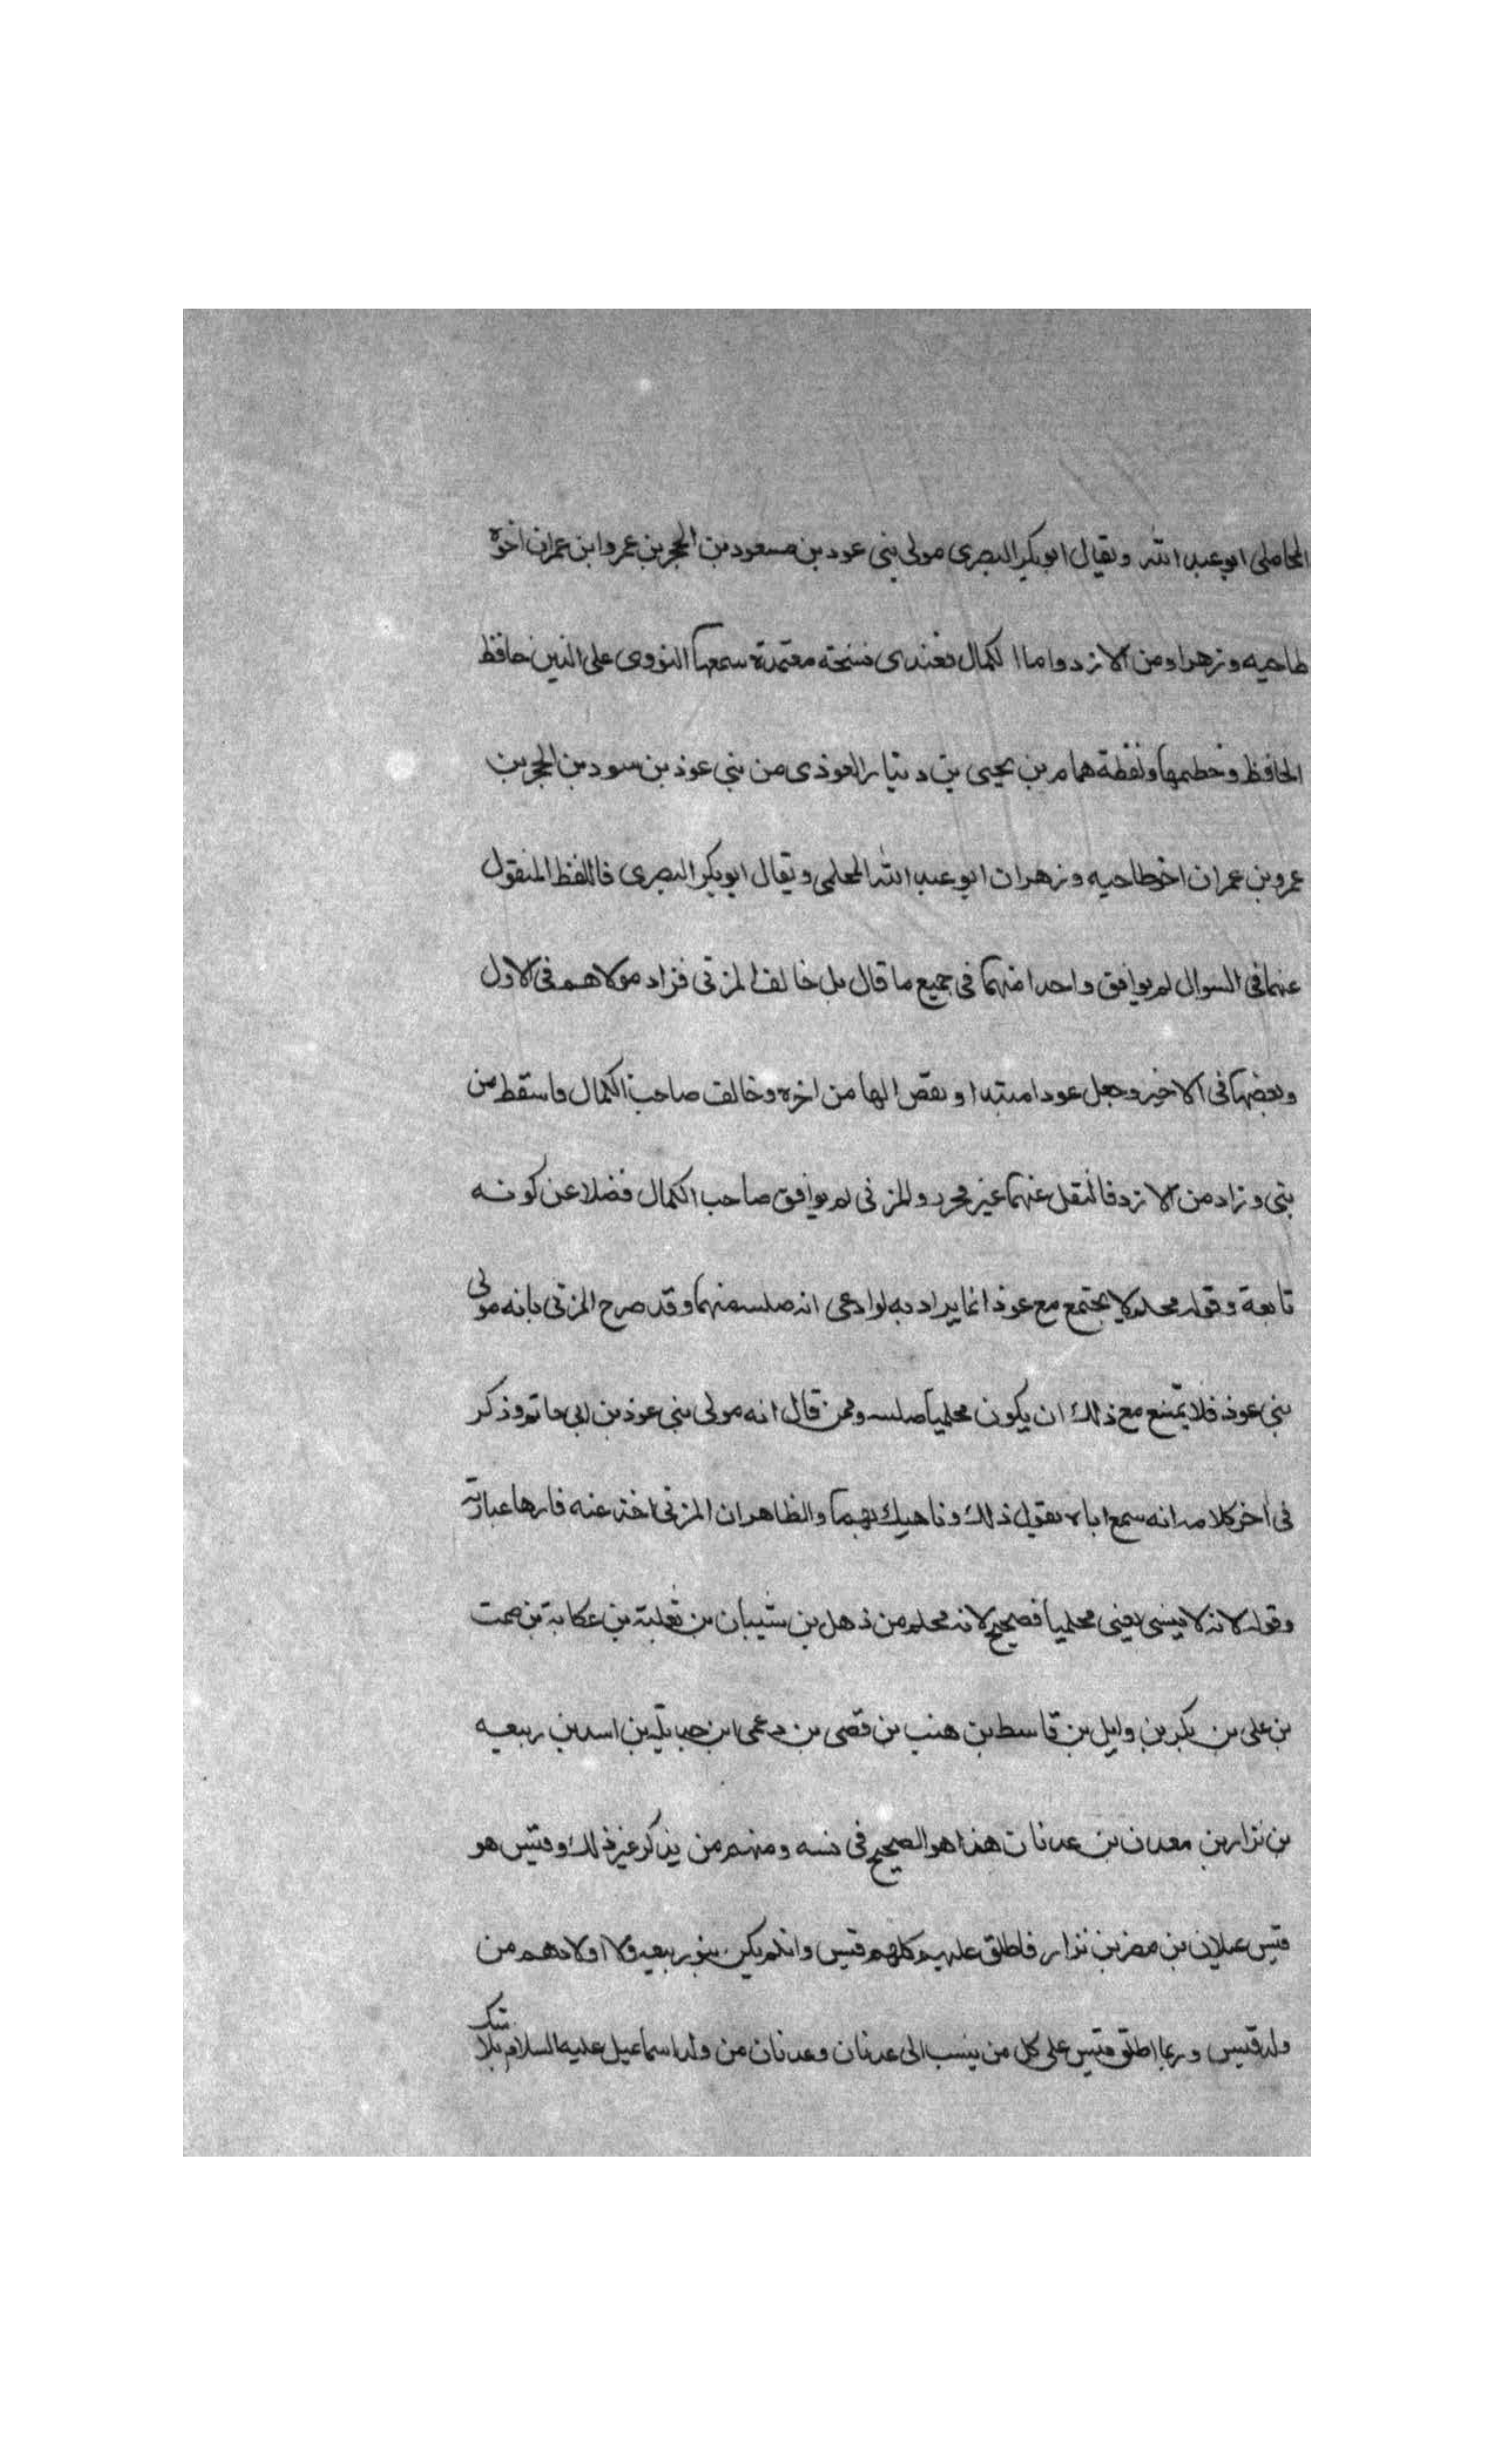 المحاملى ابو عبد الله ويقال ابو بكر البصرى مولى بنى عود بن مسعود بن الحجر بن عمرو ابن عمران اخوة
طاحيه وزهراو من الازد واما الكمال فعندى نسخة معتمدة سمعها النووى على الزين حافظ
الحافظ وخطيمها ولفظة همام بن يحيى بن دينار العوذى من بنى عوذ بن سود بن الحجر بن
عمرو بن عمران اخو طاحيه وزهران ابو عبد الله المحلمى ويقال ابو بكر البصرى فاللفظ المنقول
عنهما فى السوال لم يوافق واحدا منهما فى جميع ما قال بل خالف المزنى فزاد مولاهم فى الاول
وبعضها فى الاخير وجعل عودا مبتدا ونقص الها من اخره وخالف صاحب الكمال فاسقط من
بنى وزاد من الازد فالنقل عنهما غير محرر والمزنى لم يوافق صاحب الكمال فضلا عن كونه
تابعة وقوله محلم لا يجتمع مع عوذ انما يراد به لو ادعى انه صلبه منهما وقد صرح المزنى بانه مولى
بنى عوذ فلا يمتنع مع ذلك ان يكون محلميا صلبه وممن قال انه مولى بنى عوذ بن ابى حاتم وذكر
فى آخر كلامه انه سمع اباه يقول ذلك وناهيك بهما والظاهر ان المزنى اخذ عنه فانها عبارته
وقوله لانه لا ينسى يعنى محلميا فصحيح لانه محلم من ذهل بن شيبان بن ثعلبة بن عكابة بن صمت
بن على بن بكر بن وايل بن قاسط بن هنب بن قصى بن دعمى ابن جباتله بن اسد بن ربيعه
بن نزار بن معدن بن عدنان هذا هو الصحيح فى نسبه ومنهم من يذكر غير ذلك وقيس هو
قيس عيلان بن مضر بن نزار فاطلق عليهم كلهم قيس وان لم يكن بنو ربيعه ولا اولادهم من
ولد قيس وربما اطلق قيس على كل من ينسب الى عدنان وعدنان من ولد اسماعيل عليه السلام بلا شك